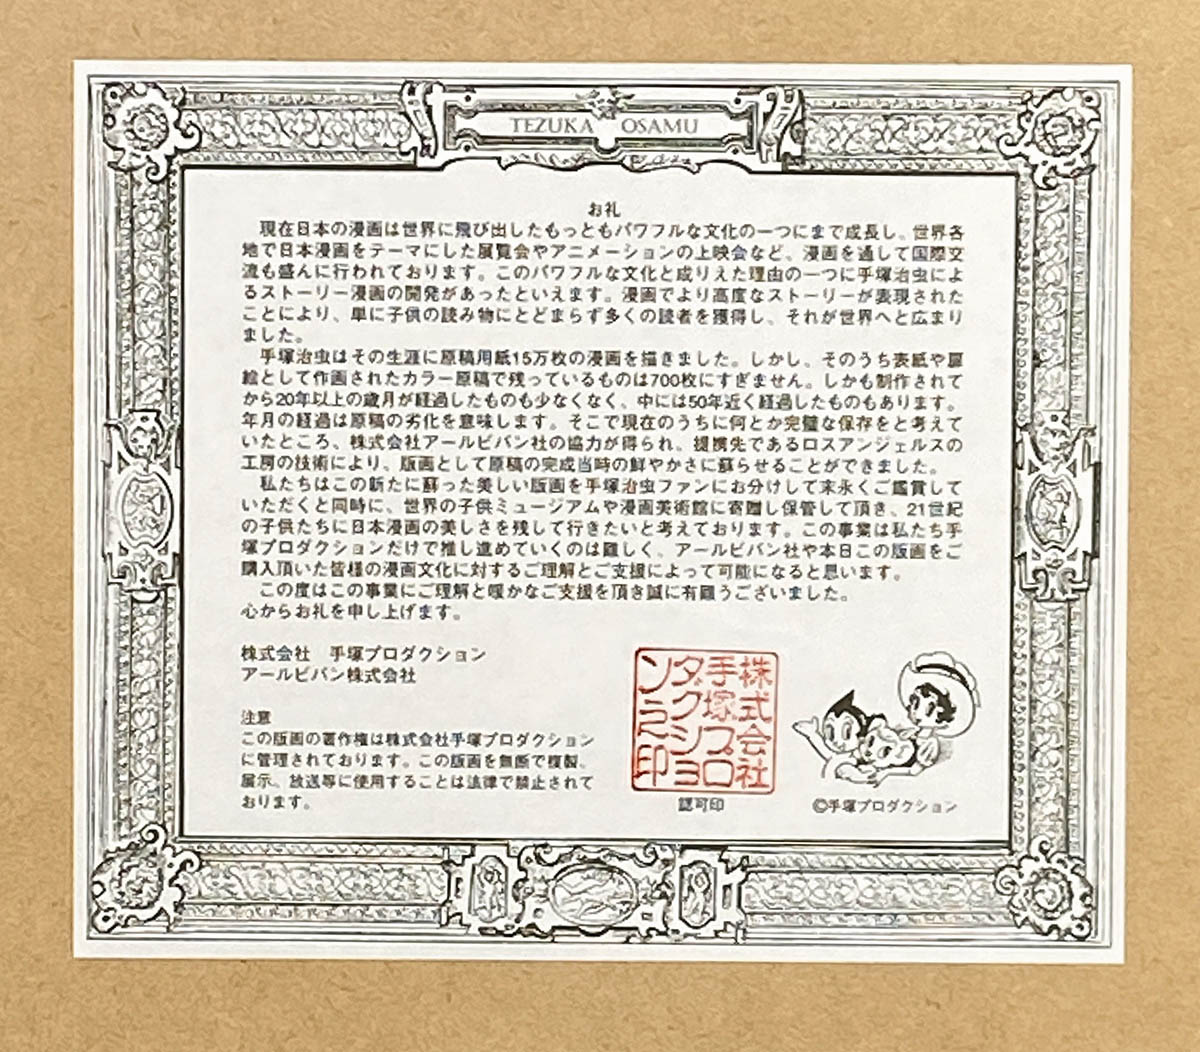 TEZUKA OSAMU
お礼
現在日本の漫画は世界に飛び出したもっともパワフルな文化の一つにまで成長し、世界各
地で日本漫画をテーマにした展覧会やアニメーションの上映会など、漫画を通して国際交
流も盛んに行われております。このパワフルな文化と成りえた理由の一つに手塚治虫によ
るストーリー漫画の開発があったといえます。漫画でより高度なストーリーが表現された
ことにより、単に子供の読み物にとどまらず多くの読者を獲得し、それが世界へと広まり
ました。
手塚治虫はその生涯に原稿用紙15万枚の漫画を描きました。しかし、そのうち表紙や扉
絵として作画されたカラー原稿で残っているものは700枚にすぎません。しかも制作されて
から20年以上の歳月が経過したものも少なくなく、中には50年近く経過したものもあります。
年月の経過は原稿の劣化を意味します。そこで現在のうちに何とか完璧な保存をと考えて
いたところ、株式会社アールビバン社の協力が得られ、提携先であるロスアンジェルスの
工房の技術により、版画として原稿の完成当時の鮮やかさに蘇らせることができました。
私たちはこの新たに蘇った美しい版画を手塚治虫ファンにお分けして末永くご鑑賞して
いただくと同時に、世界の子供ミュージアムや漫画美術館に寄贈し保管して頂き、21世紀
の子供たちに日本漫画の美しさを残して行きたいと考えております。この事業は私たち手
塚プロダクションだけで推し進めていくのは難しく、アールビバン社や本日この版画をご
購入頂いた皆様の漫画文化に対するご理解とご支援によって可能になると思います。
この度はこの事業にご理解と暖かなご支援を頂き誠に有難うございました。
心からお礼を申し上げます。
株式会社 手塚プロダクション
アールビバン株式会社
注意
この版画の著作権は株式会社手塚プロダクション
に管理されております。この版画を無断で複製、
展示、放送等に使用することは法律で禁止されて
おります。
株式会社
手塚プロ
ダクショ
ン之印
認可印
©手塚プロダクション